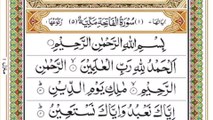 سُوْرَةُ الْفَاتِحَةِ مَكِّيَّةٌ
بِسْمِ اللّٰهِ الرَّحْمٰنِ الرَّحِيْمِ
اَلْحَمْدُ لِلّٰهِ رَبِّ الْعٰلَمِيْنَ الرَّحْمٰنِ
الرَّحِيْمِ مٰلِكِ يَوْمِ الدِّيْنِ
اِيَّاكَ نَعْبُدُ وَاِيَّاكَ نَسْتَعِيْنُ